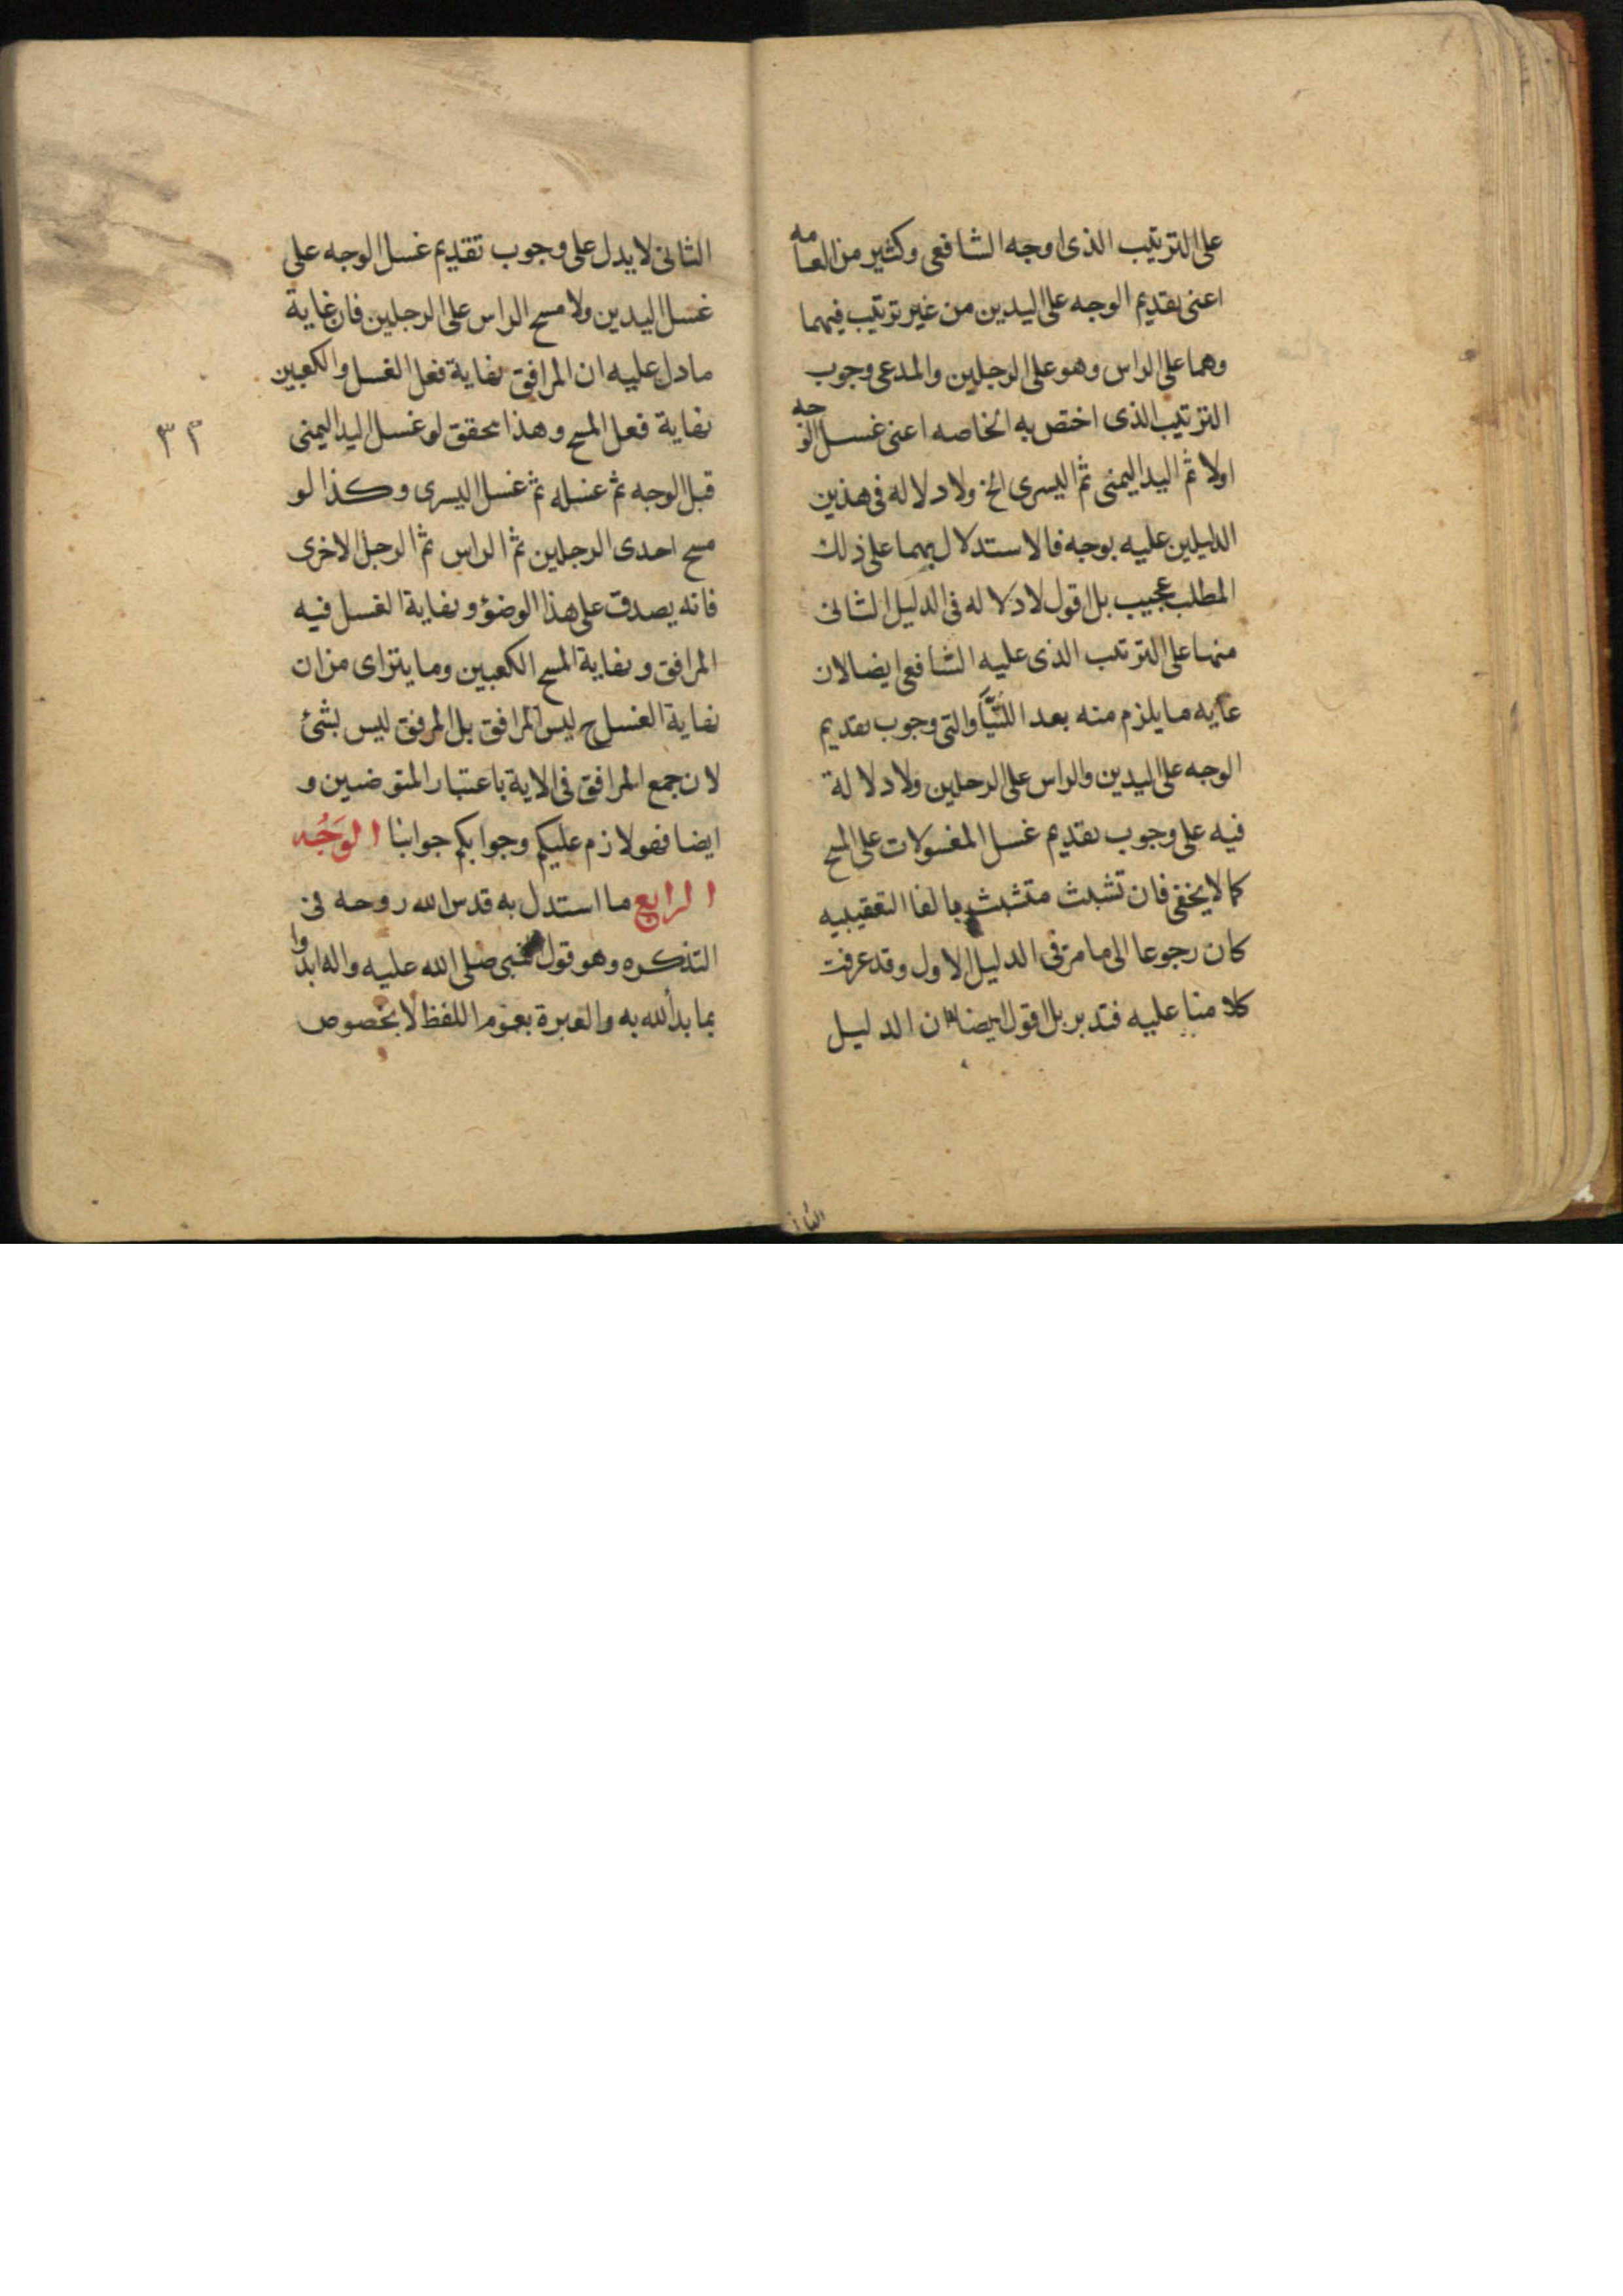 على الترتيب الذى اوجه الشافعى وكثير من العامه
اعنى تقديم الوجه على اليدين من غير ترتيب فيهما
وهما على الراس وهو على الرجلين والمدعى وجوب
الترتيب الذى اختص به الخاصه اعنى غسل الوجه
اولا ثم اليد اليمنى ثم اليسرى الخ ولا دلاله فى هذين
الدليلين عليه بوجه فالاستدلال بهما على ذلك
المطلب عجيب بل اقول لا دلاله فى الدليل الثانى
منها على الترتيب الذى عليه الشافعى ايضا لان
غايه ما يلزم منه بعد اللتيا والتى وجوب تقديم
الوجه على اليدين والراس على الرجلين ولا دلالة
فيه على وجوب تقديم غسل المغسولات على المسح
كما لا يخفى فان تشبث متشبث بالفا التعقيبيه
كان رجوعا الى ما مر فى الدليل الاول وقد عرفت
كلامنا عليه فتدبر بل اقول ايضا ان الدليل
الثانى
الثانى لا يدل على وجوب تقديم غسل الوجه على
غسل اليدين ولا مسح الراس على الرجلين فان غاية
ما دل عليه ان المرافق نهاية فعل الغسل والكعبين
نهاية فعل المسح وهذا محقق لو غسل اليد اليمنى
٣٢
قبل الوجه ثم غسله ثم غسل اليسرى وكذا لو
مسح احدى الرجلين ثم الراس ثم الرجل الاخرى
فانه يصدق على هذا الوضؤ ونهاية الغسل فيه
المرافق ونهاية المسح الكعبين وما يتراى من ان
نهاية الغسل ح ليس المرافق بل المرفق ليس بشئ
لان جمع المرافق فى الاية باعتبار المتوضيين و
ايضا فهو لازم عليكم وجوابكم جوابنا الوَجْه
الرابع ما استدل به قدس الله روحه فى
التذكره وهو قول النبى صلى الله عليه واله ابدوا
بما بدأ الله به والعبرة بعموم اللفظ لا بخصوص